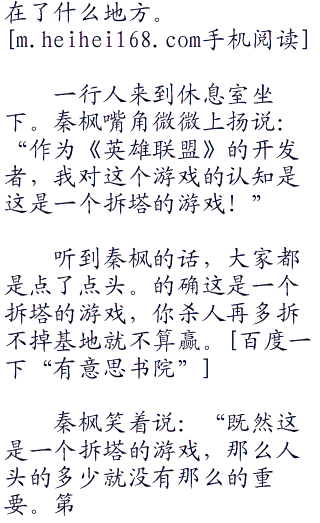 在了什么地方。
[m.heihei168.com手机阅读]
一行人来到休息室坐
下。秦枫嘴角微微上扬说：
“作为《英雄联盟》的开发
者，我对这个游戏的认知是
这是一个拆塔的游戏！”
听到秦枫的话，大家都
是点了点头。的确这是一个
拆塔的游戏，你杀人再多拆
不掉基地就不算赢。[百度一
下“有意思书院”]
秦枫笑着说：“既然这
是一个拆塔的游戏，那么人
头的多少就没有那么的重
要。第